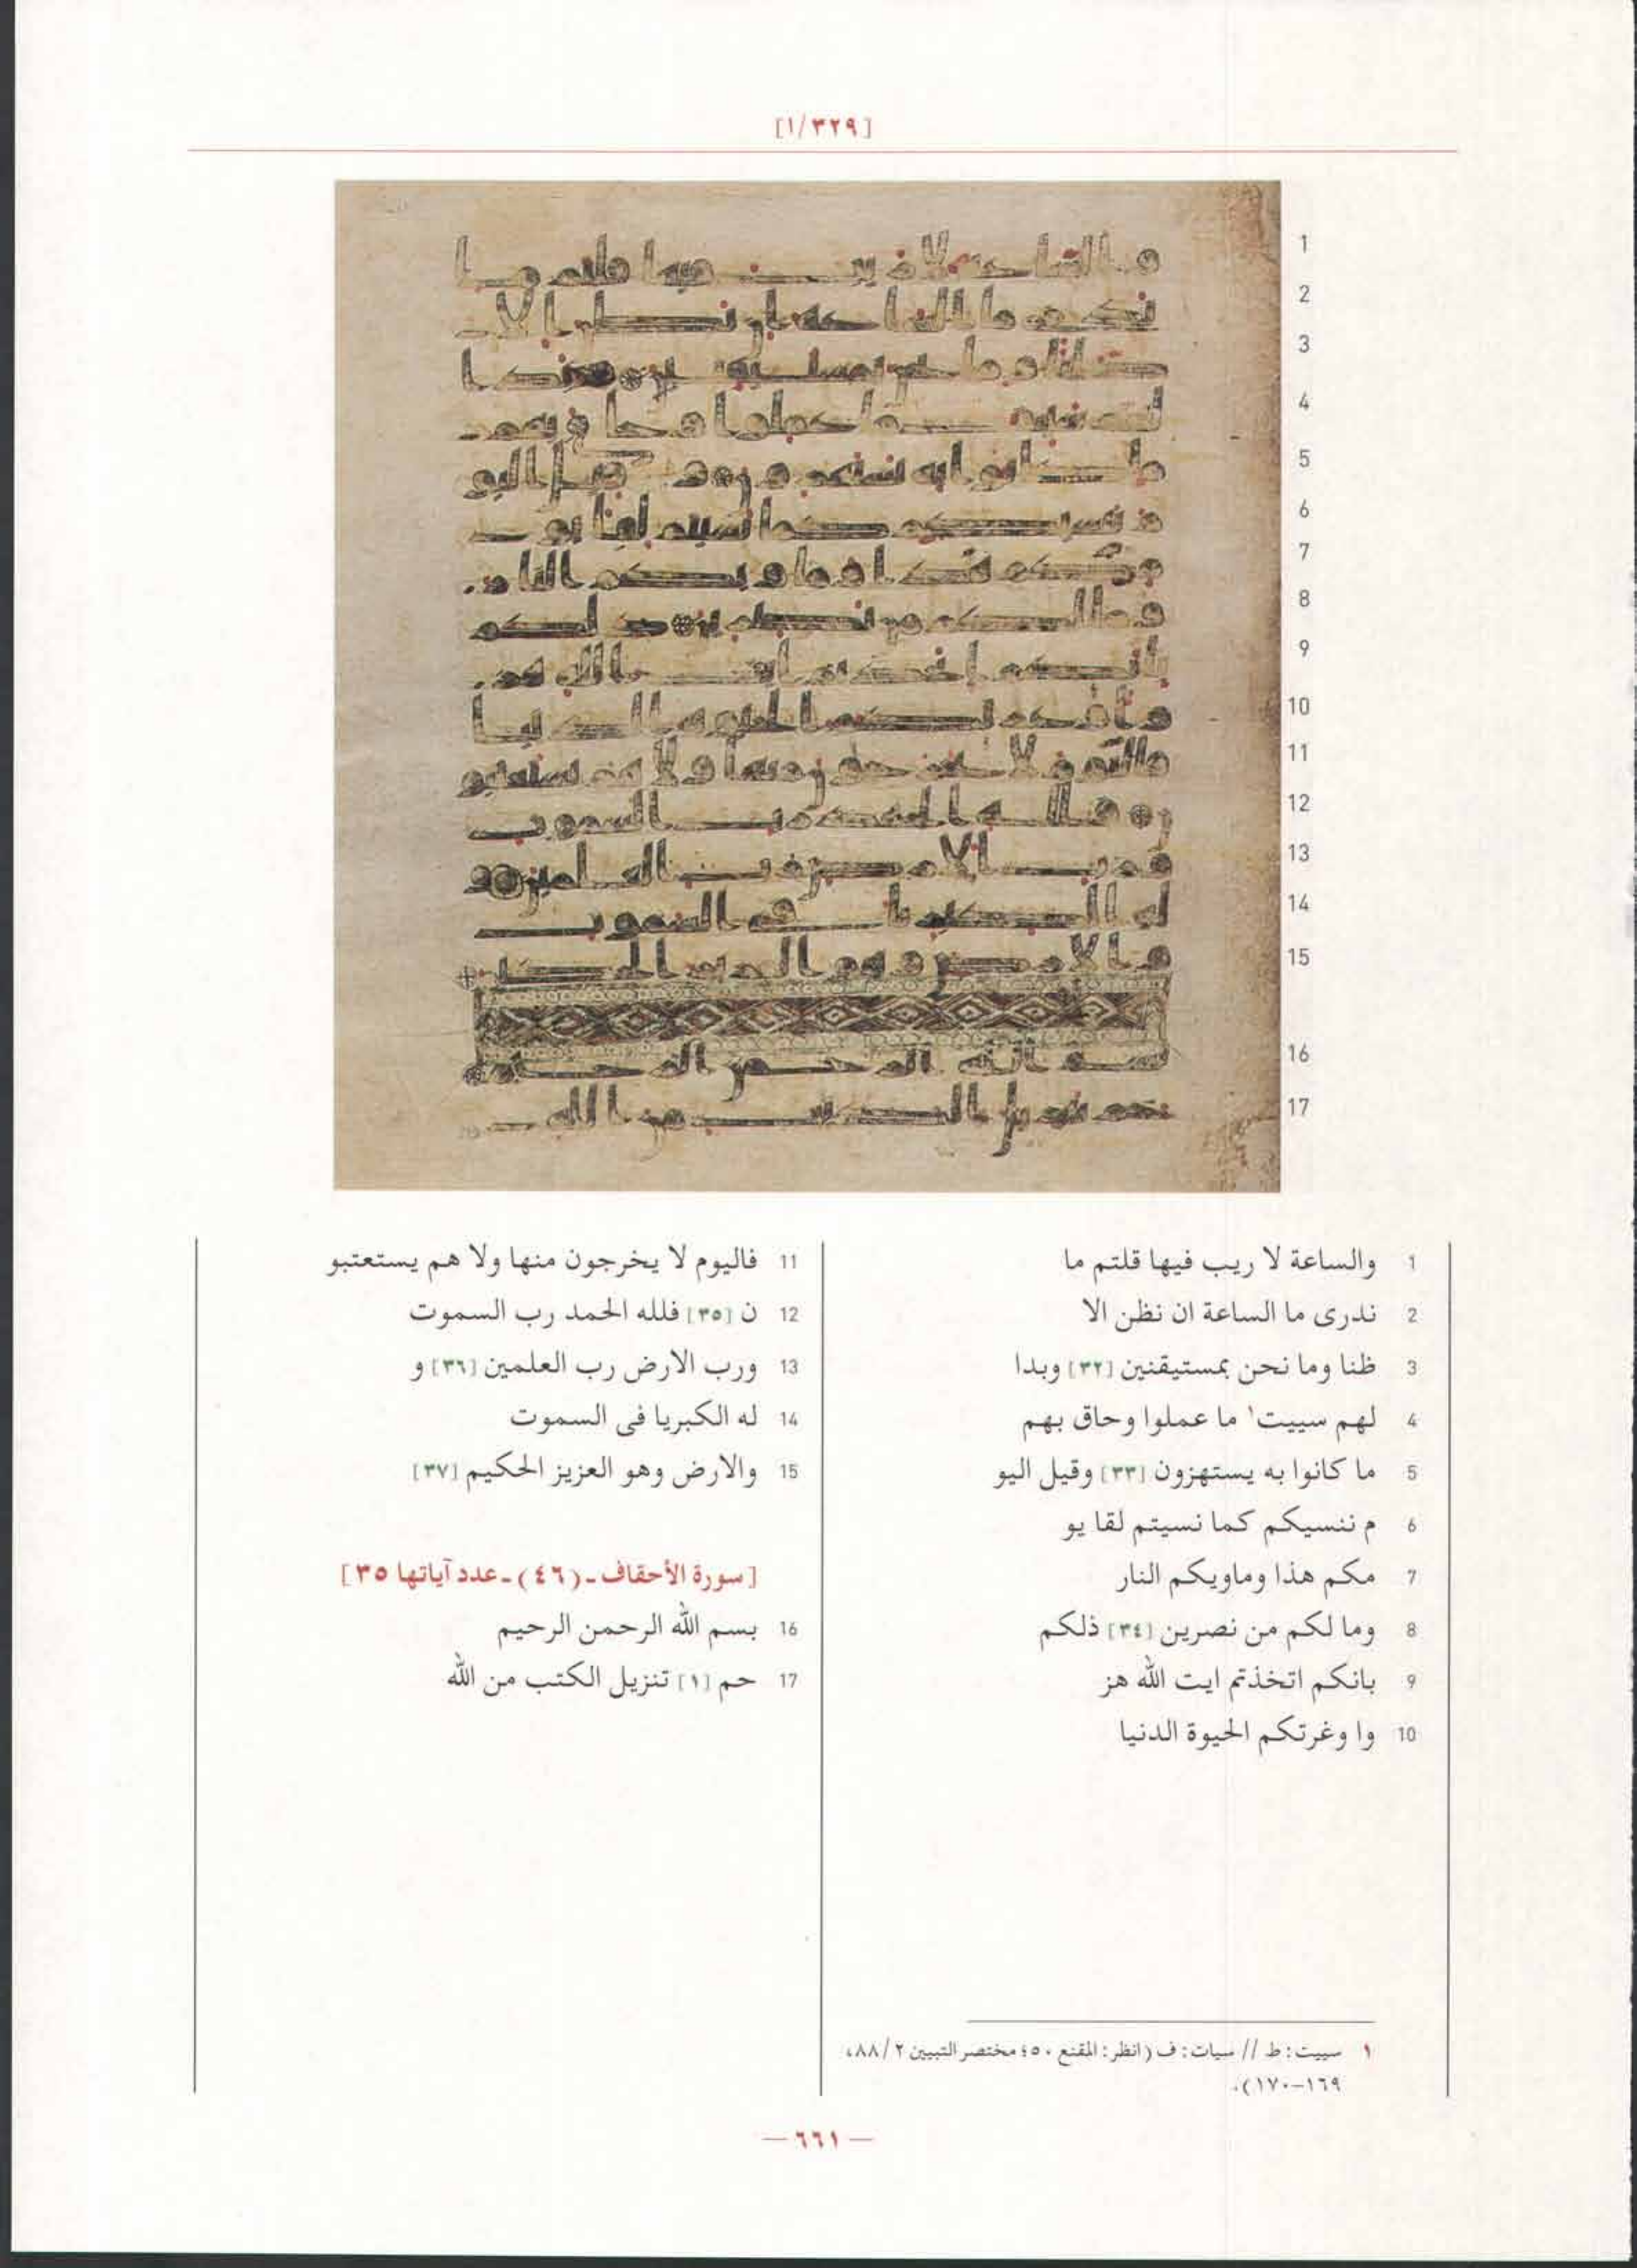 [١/٣٢٩]
1
2
3
4
5
6
7
8
9
10
11
12
13
14
15
16
17
1 والساعة لا ريب فيها قلتم ما
2 ندرى ما الساعة ان نظن الا
3 ظنا وما نحن بمستيقنين [٣٢] وبدا
4 لهم سييت١ ما عملوا وحاق بهم
5 ما كانوا به يستهزون [٣٣] وقيل اليو
6 م ننسيكم كما نسيتم لقا يو
7 مكم هذا وماويكم النار
8 وما لكم من نصرين [٣٤] ذلكم
9 بانكم اتخذتم ايت الله هز
10 وا وغرتكم الحيوة الدنيا
11 فاليوم لا يخرجون منها ولا هم يستعتبو
12 ن [٣٥] فلله الحمد رب السموت
13 ورب الارض رب العلمين [٣٦] و
14 له الكبريا فى السموت
15 والارض وهو العزيز الحكيم [٣٧]
[سورة الأحقاف ـ (٤٦) ـ عدد آياتها ٣٥]
16 بسم الله الرحمن الرحيم
17 حم [١] تنزيل الكتب من الله
١ سييت: ط // سيات: ف (انظر: المقنع ٥٠؛ مختصر التبيين ٢/ ٨٨،
١٦٩–١٧٠).
— ٦٦١ —